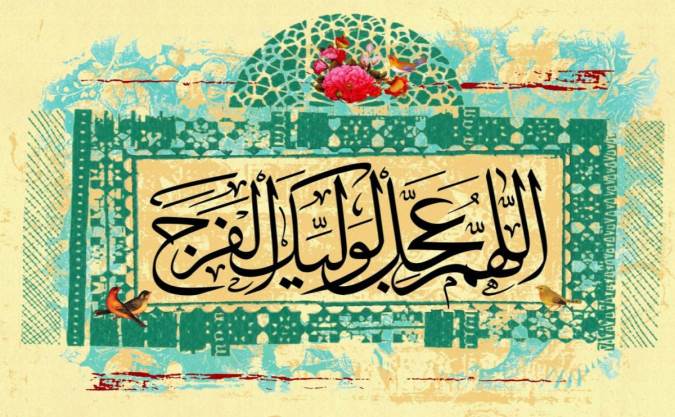 اللّهمّ عجّل لوليّک الفرج